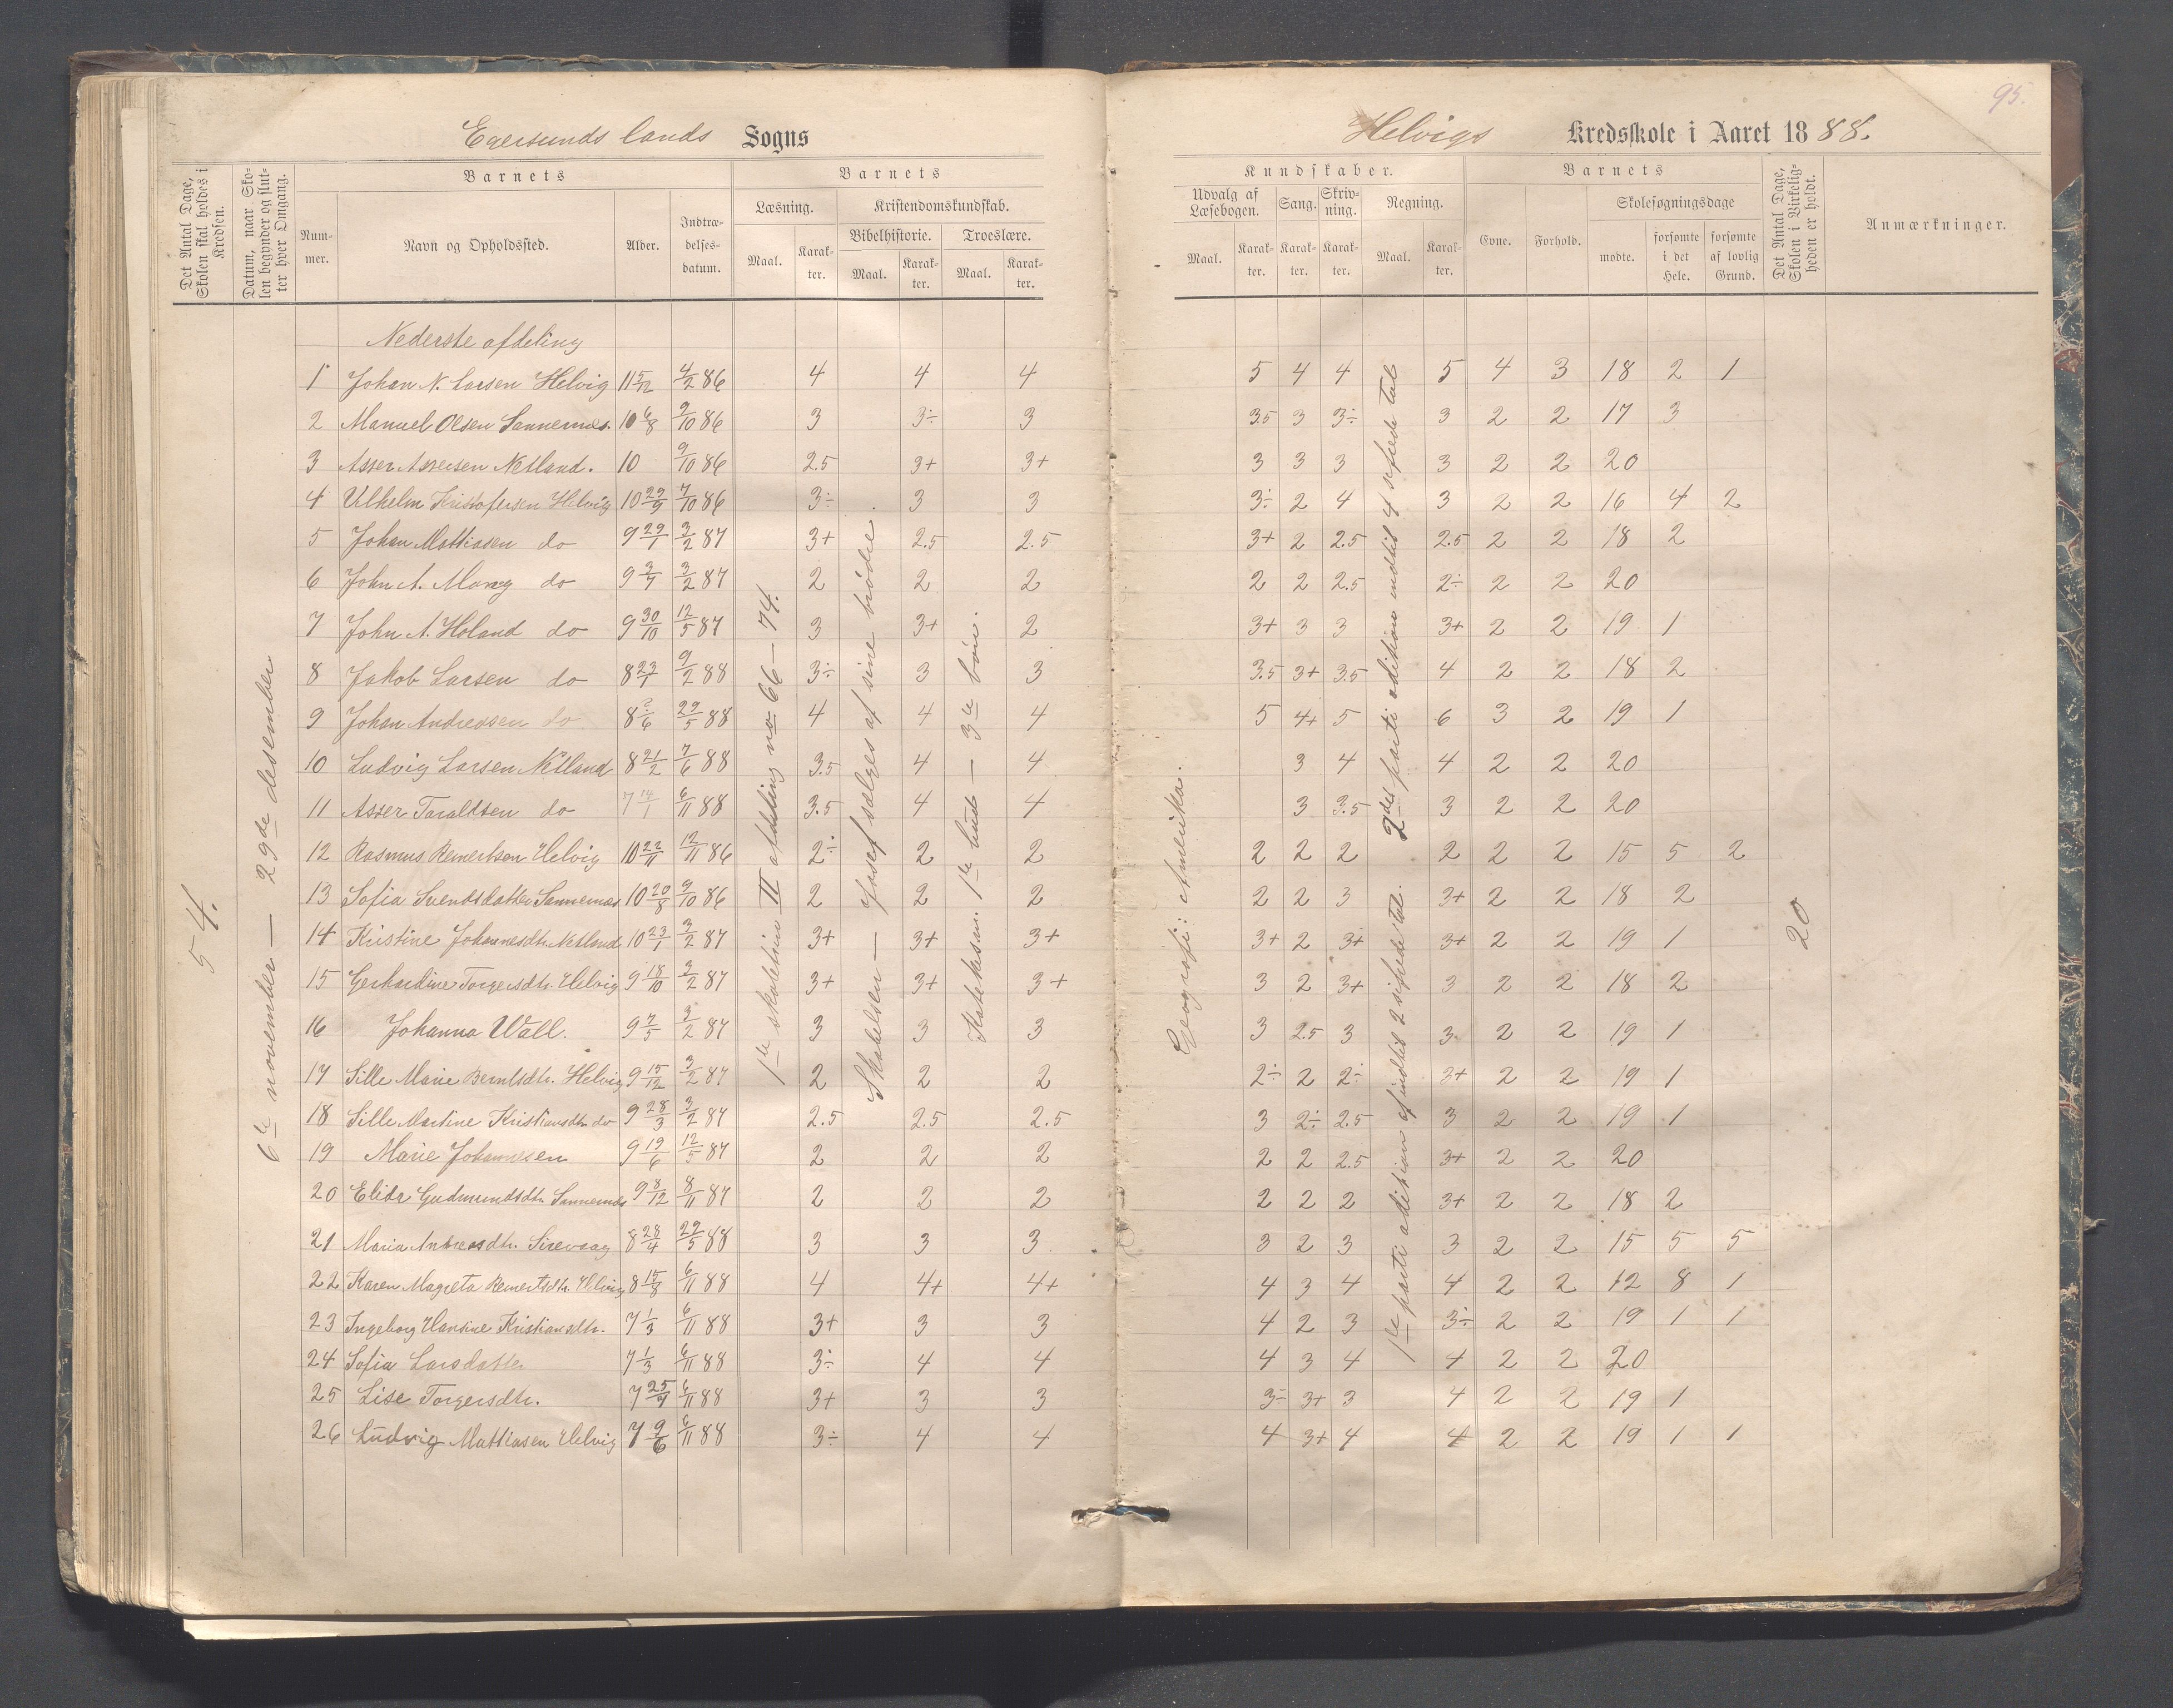 95.
Egersunds lands Sogns
Helvigs Kredsskole i Aaret 1888.
Det Antal Dage, Skolen skal holdes i Kredsen.
Datum, naar Skolen begynder og slutter hver Omgang.
Barnets
Nummer.
Navn og Opholdssted.
Alder.
Indtrædelsesdatum.
Barnets
Læsning.
Maal.
Karakter.
Kristendomskundskab.
Bibelhistorie.
Maal.
Karakter.
Troeslære.
Maal.
Karakter.
Kundskaber.
Udvalg af Læsebogen.
Maal.
Karakter.
Sang.
Karakter.
Skrivning.
Karakter.
Regning.
Maal.
Karakter.
Barnets
Evne.
Forhold.
Skolesøgningsdage
mødte.
forsømte i det Hele.
forsømte af lovlig Grund.
Det Antal Dage, Skolen i Virkeligheden er holdt.
Anmærkninger.
54.
6te november — 29de desember
Nederste afdeling
1 Johan N. Larsen Helvig 11 5/12 4/2 86 4 4 4 5 4 4 5 4 3 18 2 1
2 Manuel Olsen Sannernes. 10 6/8 9/10 86 3 3÷ 3 3.5 3 3÷ 3 2 2 17 3
3 Asser Assersen Netland. 10 9/10 86 2.5 3+ 3+ 3 3 3 3 2 2 20
4 Vilhelm Kristofersen Helvig 10 29/9 7/10 86 3÷ 3 3 3÷ 2 4 3 2 2 16 4 2
5 Johan Mattiasen do 9 29/1 3/2 87 3+ 2.5 2.5 3+ 2 2.5 2.5 2 2 18 2
6 John A. Mong do 9 3/7 3/2 87 2 2 2 2 2 2.5 2÷ 2 2 20
7 John A. Holand do 9 30/10 12/5 87 3 3+ 2 3+ 3 3 3+ 2 2 19 1
8 Jakob Larsen do 8 23/1 9/2 88 3÷ 3 3 3.5 3+ 3.5 4 2 2 18 2
9 Johan Andreasen do 8 2/6 29/5 88 4 4 4 5 4+ 5 6 3 2 19 1
10 Ludvig Larsen Netland 8 21/2 7/6 88 3.5 4 4 3 4 4 2 2 20
11 Asser Taraldsen do 7 14/1 6/11 88 3.5 4 4 3 3.5 3 2 2 20
12 Rasmus Reinertsen Helvig 10 22/11 12/11 86 2÷ 2 2 2 2 2 2 2 2 15 5 2
13 Sofia Svendsdatter Sannernes 10 20/8 9/10 86 2 2 2 2 2 3 3+ 2 2 18 2
14 Kristine Johannesdtr. Netland 10 23/1 3/2 87 3+ 3+ 3+ 3+ 2 3+ 3+ 2 2 19 1
15 Gerhardine Torgersdtr. Helvig 9 18/10 3/2 87 3+ 3+ 3+ 3 2 3+ 3 2 2 18 2
16 Johanna Wall. 9 7/5 3/2 87 3 3 3 3 2.5 3 3 2 2 19 1
17 Sille Marie Berntsdtr. Helvig 9 15/12 3/2 87 2 2 2 2÷ 2 2÷ 3+ 2 2 19 1
18 Sille Martine Kristiansdtr. do 9 28/3 3/2 87 2.5 2.5 2.5 3 2÷ 2.5 3 2 2 19 1
19 Marie Johannesen 9 19/6 12/5 87 2 2 2 2 2 2.5 3+ 2 2 20
20 Elida Gudmundsdtr. Sannernes 9 8/12 8/11 87 2 2 2 2 2 2 3+ 2 2 18 2
21 Maria Andreasdtr. Sirevaag 8 28/4 29/5 88 3 3 3 3 2 3 3 2 2 15 5 5
22 Karen Magreta Reinertsdtr. Helvig 8 15/8 6/11 88 4 4+ 4+ 4 3 4 4 2 2 12 8 1
23 Ingeborg Hansine Kristiansdtr. 7 1/3 6/11 88 3+ 3 3 4 2 3 3÷ 2 2 19 1 1
24 Sofia Larsdatter 7 1/3 6/11 88 3÷ 4 4 4 3 4 4 2 2 20
25 Lise Torgersdtr. 7 25/9 6/11 88 3+ 3 3 3÷ 3+ 3 4 2 2 19 1
26 Ludvig Mattiasen Helvig 7 9/6 6/11 88 3÷ 4 4 4 3+ 4 4 2 2 19 1 1
1te skoletrin II afdeling no 66 — 74.
Skabelsen — Josef sælges af sine brødre
Katekism. 1te bud — 3die bøn.
Geografi: Amerika.
1te parti addition indtil 2 sifrede tal. 2det parti addition indtil 4 sifrede tal
20